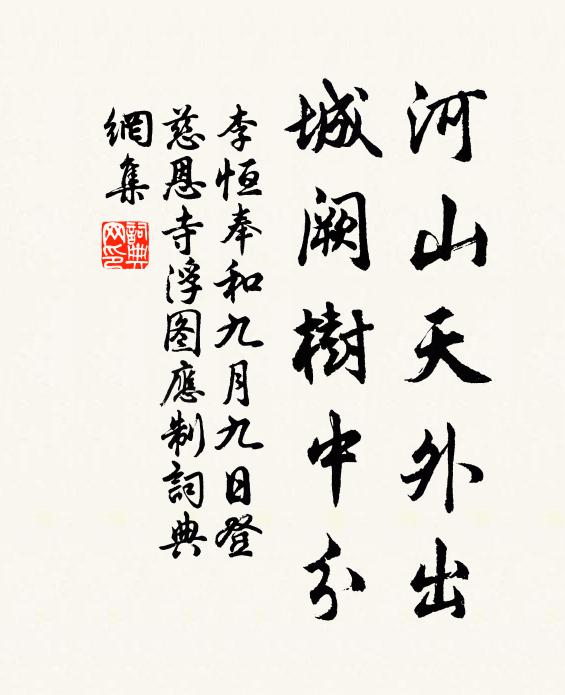 河山天外出
城阙樹中分
李恒奉和九月九日登
慈恩寺浮图應制詞典
網集
詞典网印